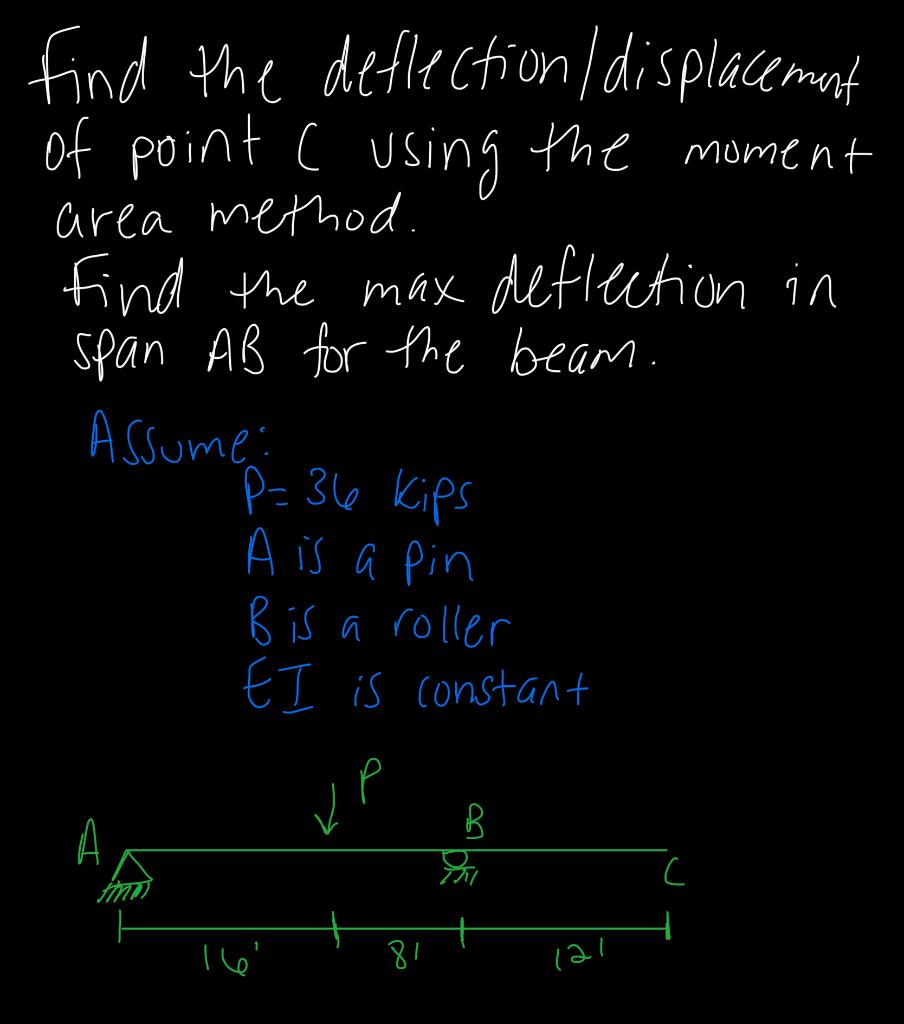 Find the deflection/displacement
of point C using the moment
area method.
Find the max deflection in
span AB for the beam.
Assume:
P= 36 kips
A is a pin
B is a roller
EI is constant
P
A
B
C
16'
8'
12'